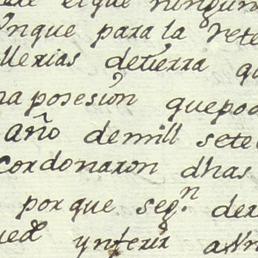 el que ningun
unque para la rete
llerias de tierra q
na posesion que pod
año de mill sete
cordonaron dhas
porque segn. der
ynterir